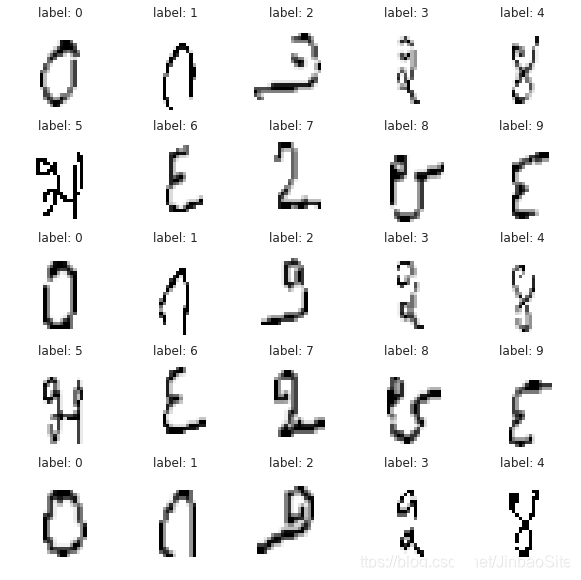 label: 0 label: 1 label: 2 label: 3 label: 4
೦ ೧ ೨ ೩ ೪
label: 5 label: 6 label: 7 label: 8 label: 9
೫ ೬ ೭ ೮ ೯
label: 0 label: 1 label: 2 label: 3 label: 4
೦ ೧ ೨ ೩ ೪
label: 5 label: 6 label: 7 label: 8 label: 9
೫ ೬ ೭ ೮ ೯
label: 0 label: 1 label: 2 label: 3 label: 4
೦ ೧ ೨ ೩ ೪
net/JinbaoSite